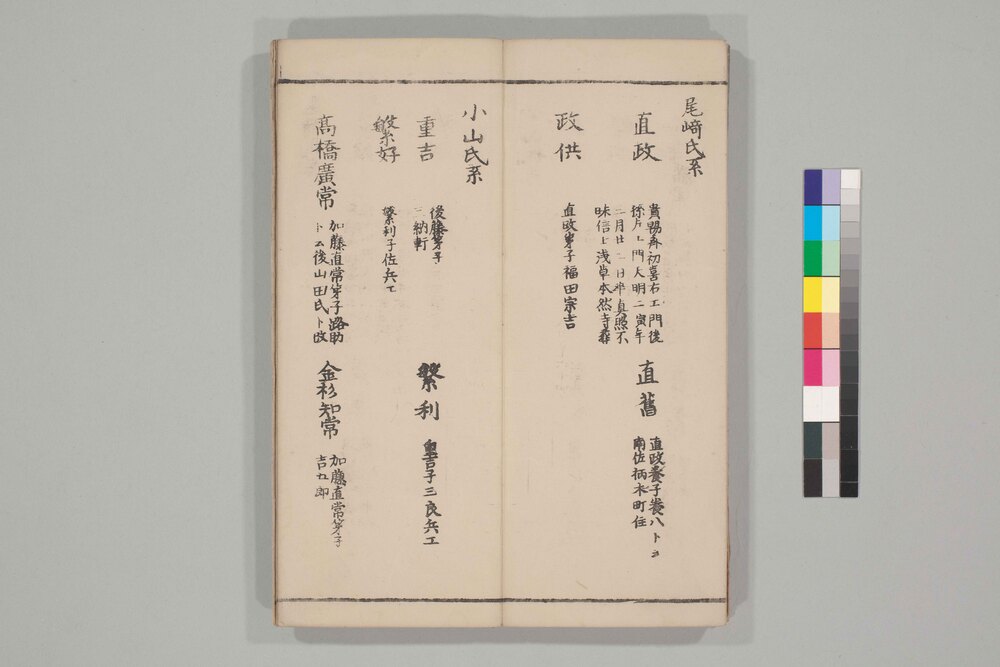 尾崎氏系
直政
貴賜斎初喜右エ門後
採片上門天明二寅年
二月廿二日卒真照不
昧信士浅草本然寺葬
直舊
直政養子巻八ト云
南佐柄木町住
政供
直政弟子福田宗吉
小山氏系
重吉
後藤弟子
納軒
繁利
重吉子三良兵エ
繁好
繁利子佐兵エ
髙橋廣常
加藤直常弟子路助
ト云後山田氏ト改
金杉知常
加藤直常弟子
吉五郎